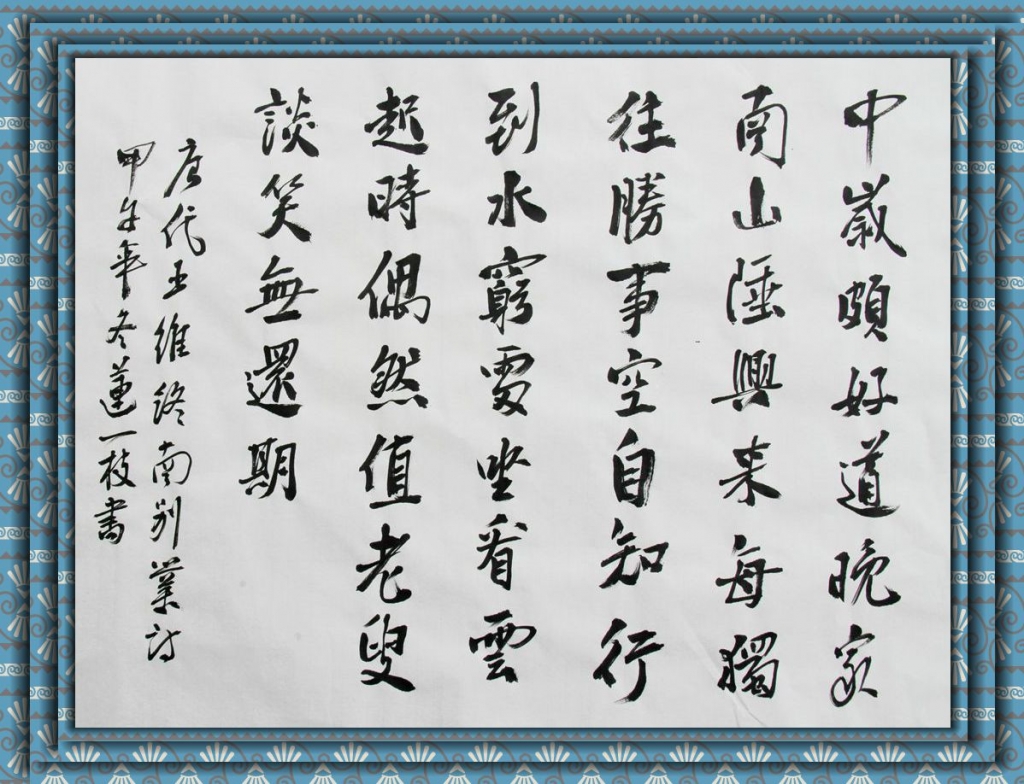 中歲頗好道晚家
南山陲興来每獨
往勝事空自知行
到水窮處坐看雲
起時偶然值老叟
談笑無還期
唐代王維終南别業詩
甲午年冬蓮一枝書